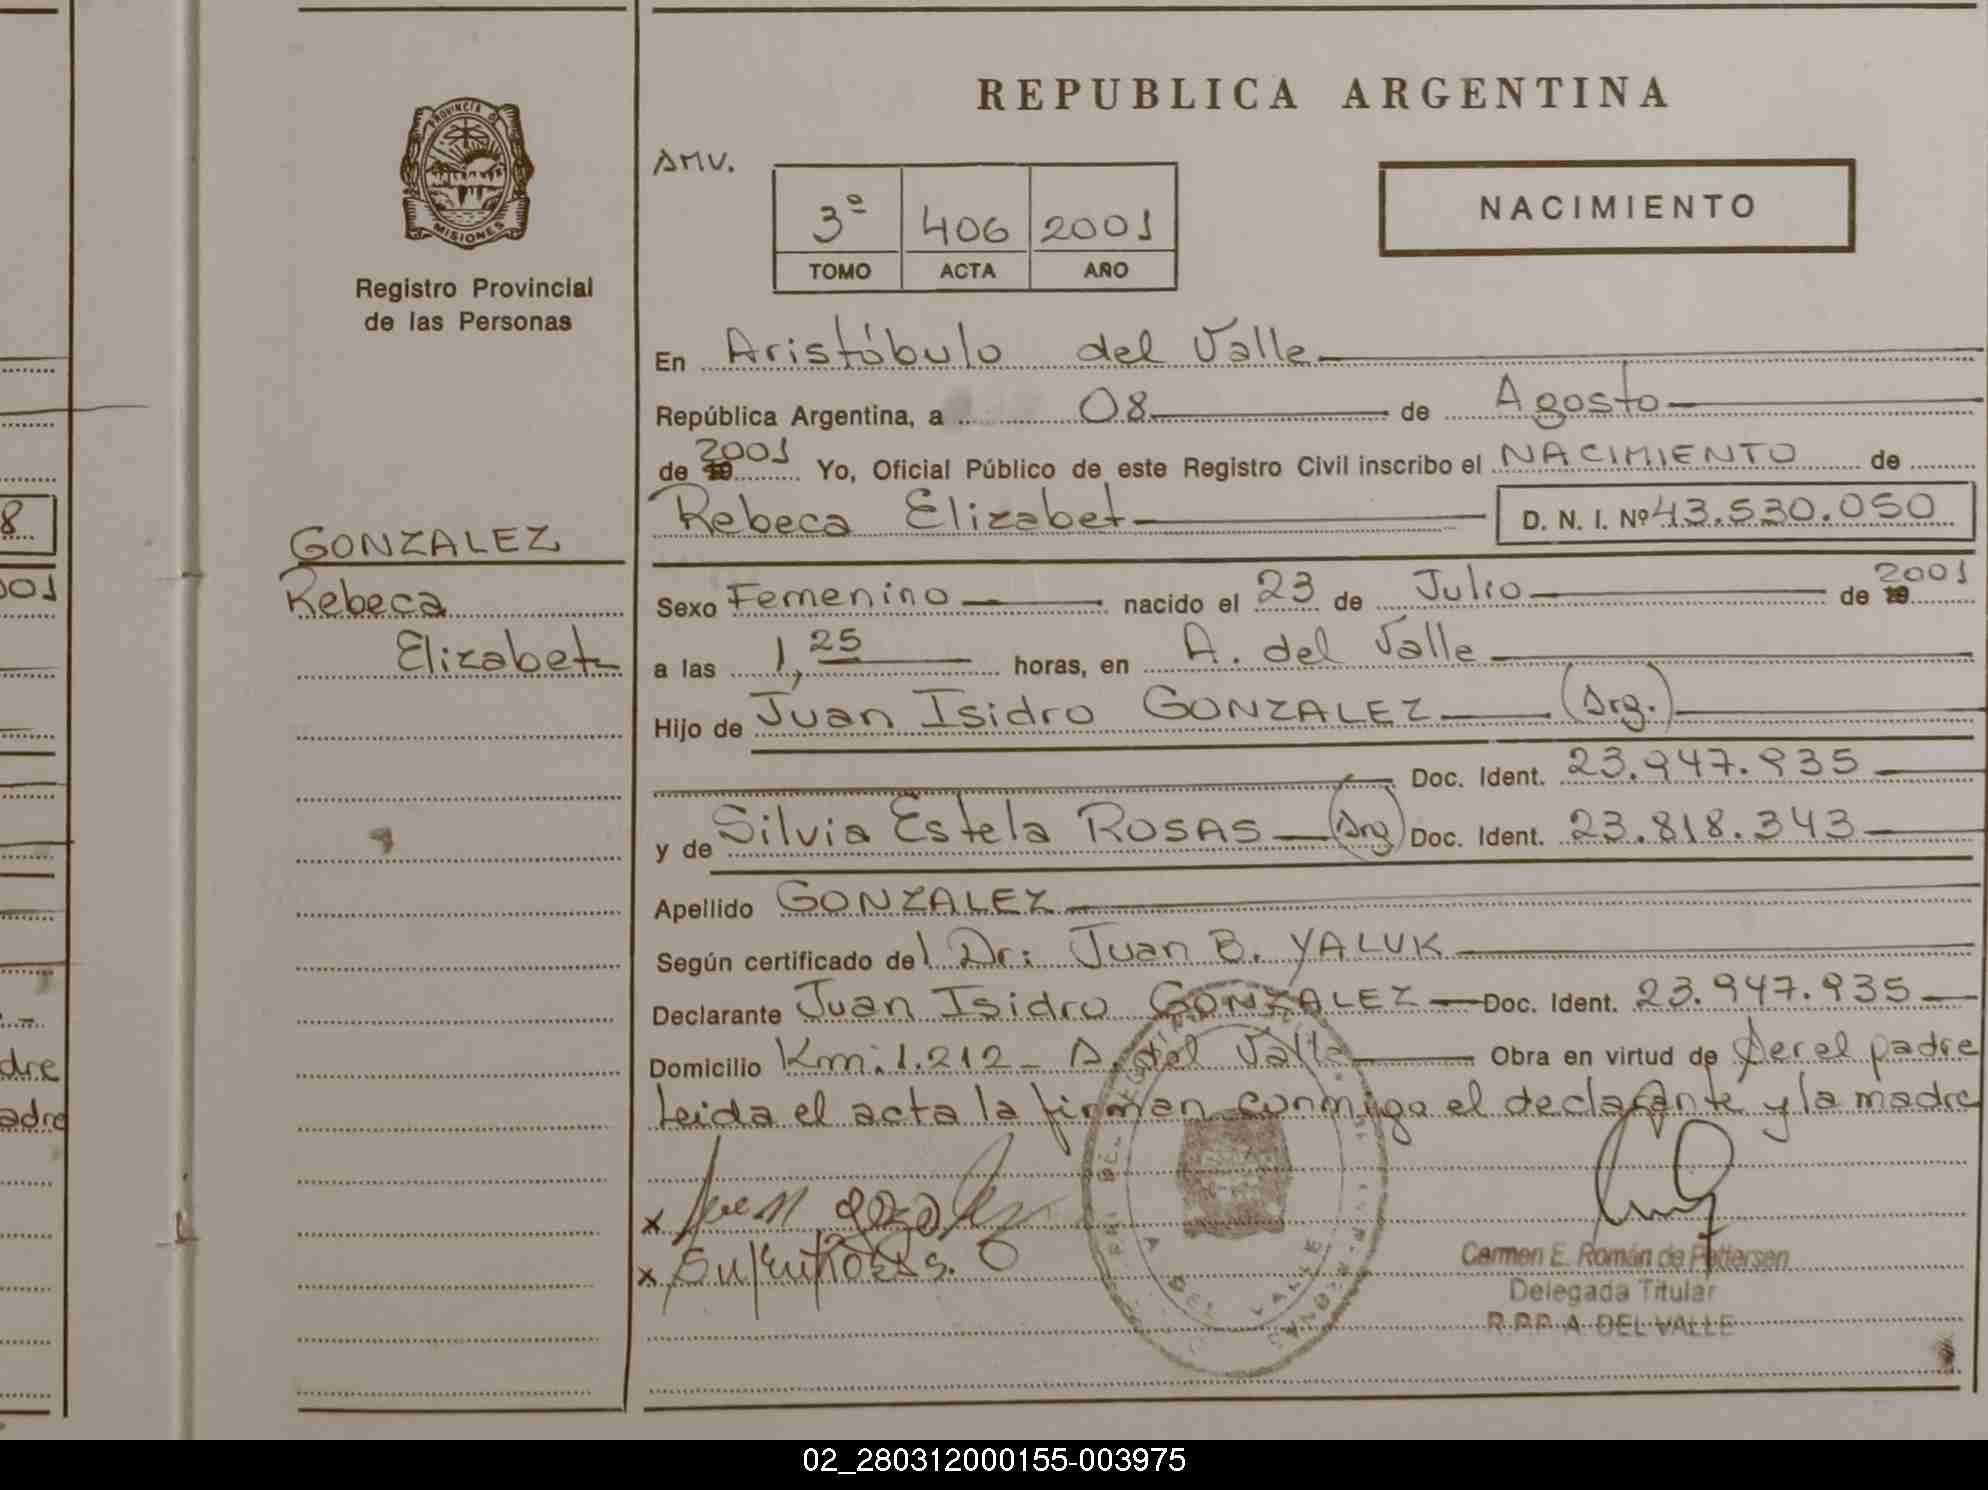 REPUBLICA ARGENTINA
PROVINCIA DE
MISIONES
Registro Provincial
de las Personas
AMV.
3º 406 2001
TOMO ACTA AÑO
NACIMIENTO
En Aristóbulo del Valle
República Argentina, a 08 de Agosto
de 2001 Yo, Oficial Público de este Registro Civil inscribo el NACIMIENTO de
Rebeca Elizabet D. N. I. Nº 43.530.050
GONZALEZ
Rebeca
Elizabet
Sexo Femenino nacido el 23 de Julio de 2001
a las 1,25 horas, en A. del Valle
Hijo de Juan Isidro GONZALEZ (Arg.)
Doc. Ident. 23.947.935
y de Silvia Estela ROSAS (Arg) Doc. Ident. 23.818.343
Apellido GONZALEZ
Según certificado del Dr: Juan B. YALUK
Declarante Juan Isidro GONZALEZ Doc. Ident. 23.947.935
Domicilio Km: 1.212 - A. del Valle Obra en virtud de ser el padre
Leida el acta la firman conmigo el declarante y la madre
x
x
A DEL VALLE
Carmen E. Román de Pettersen
Delegada Titular
R.P.P. A. DEL VALLE
8
001
dre
adre
02_280312000155-003975